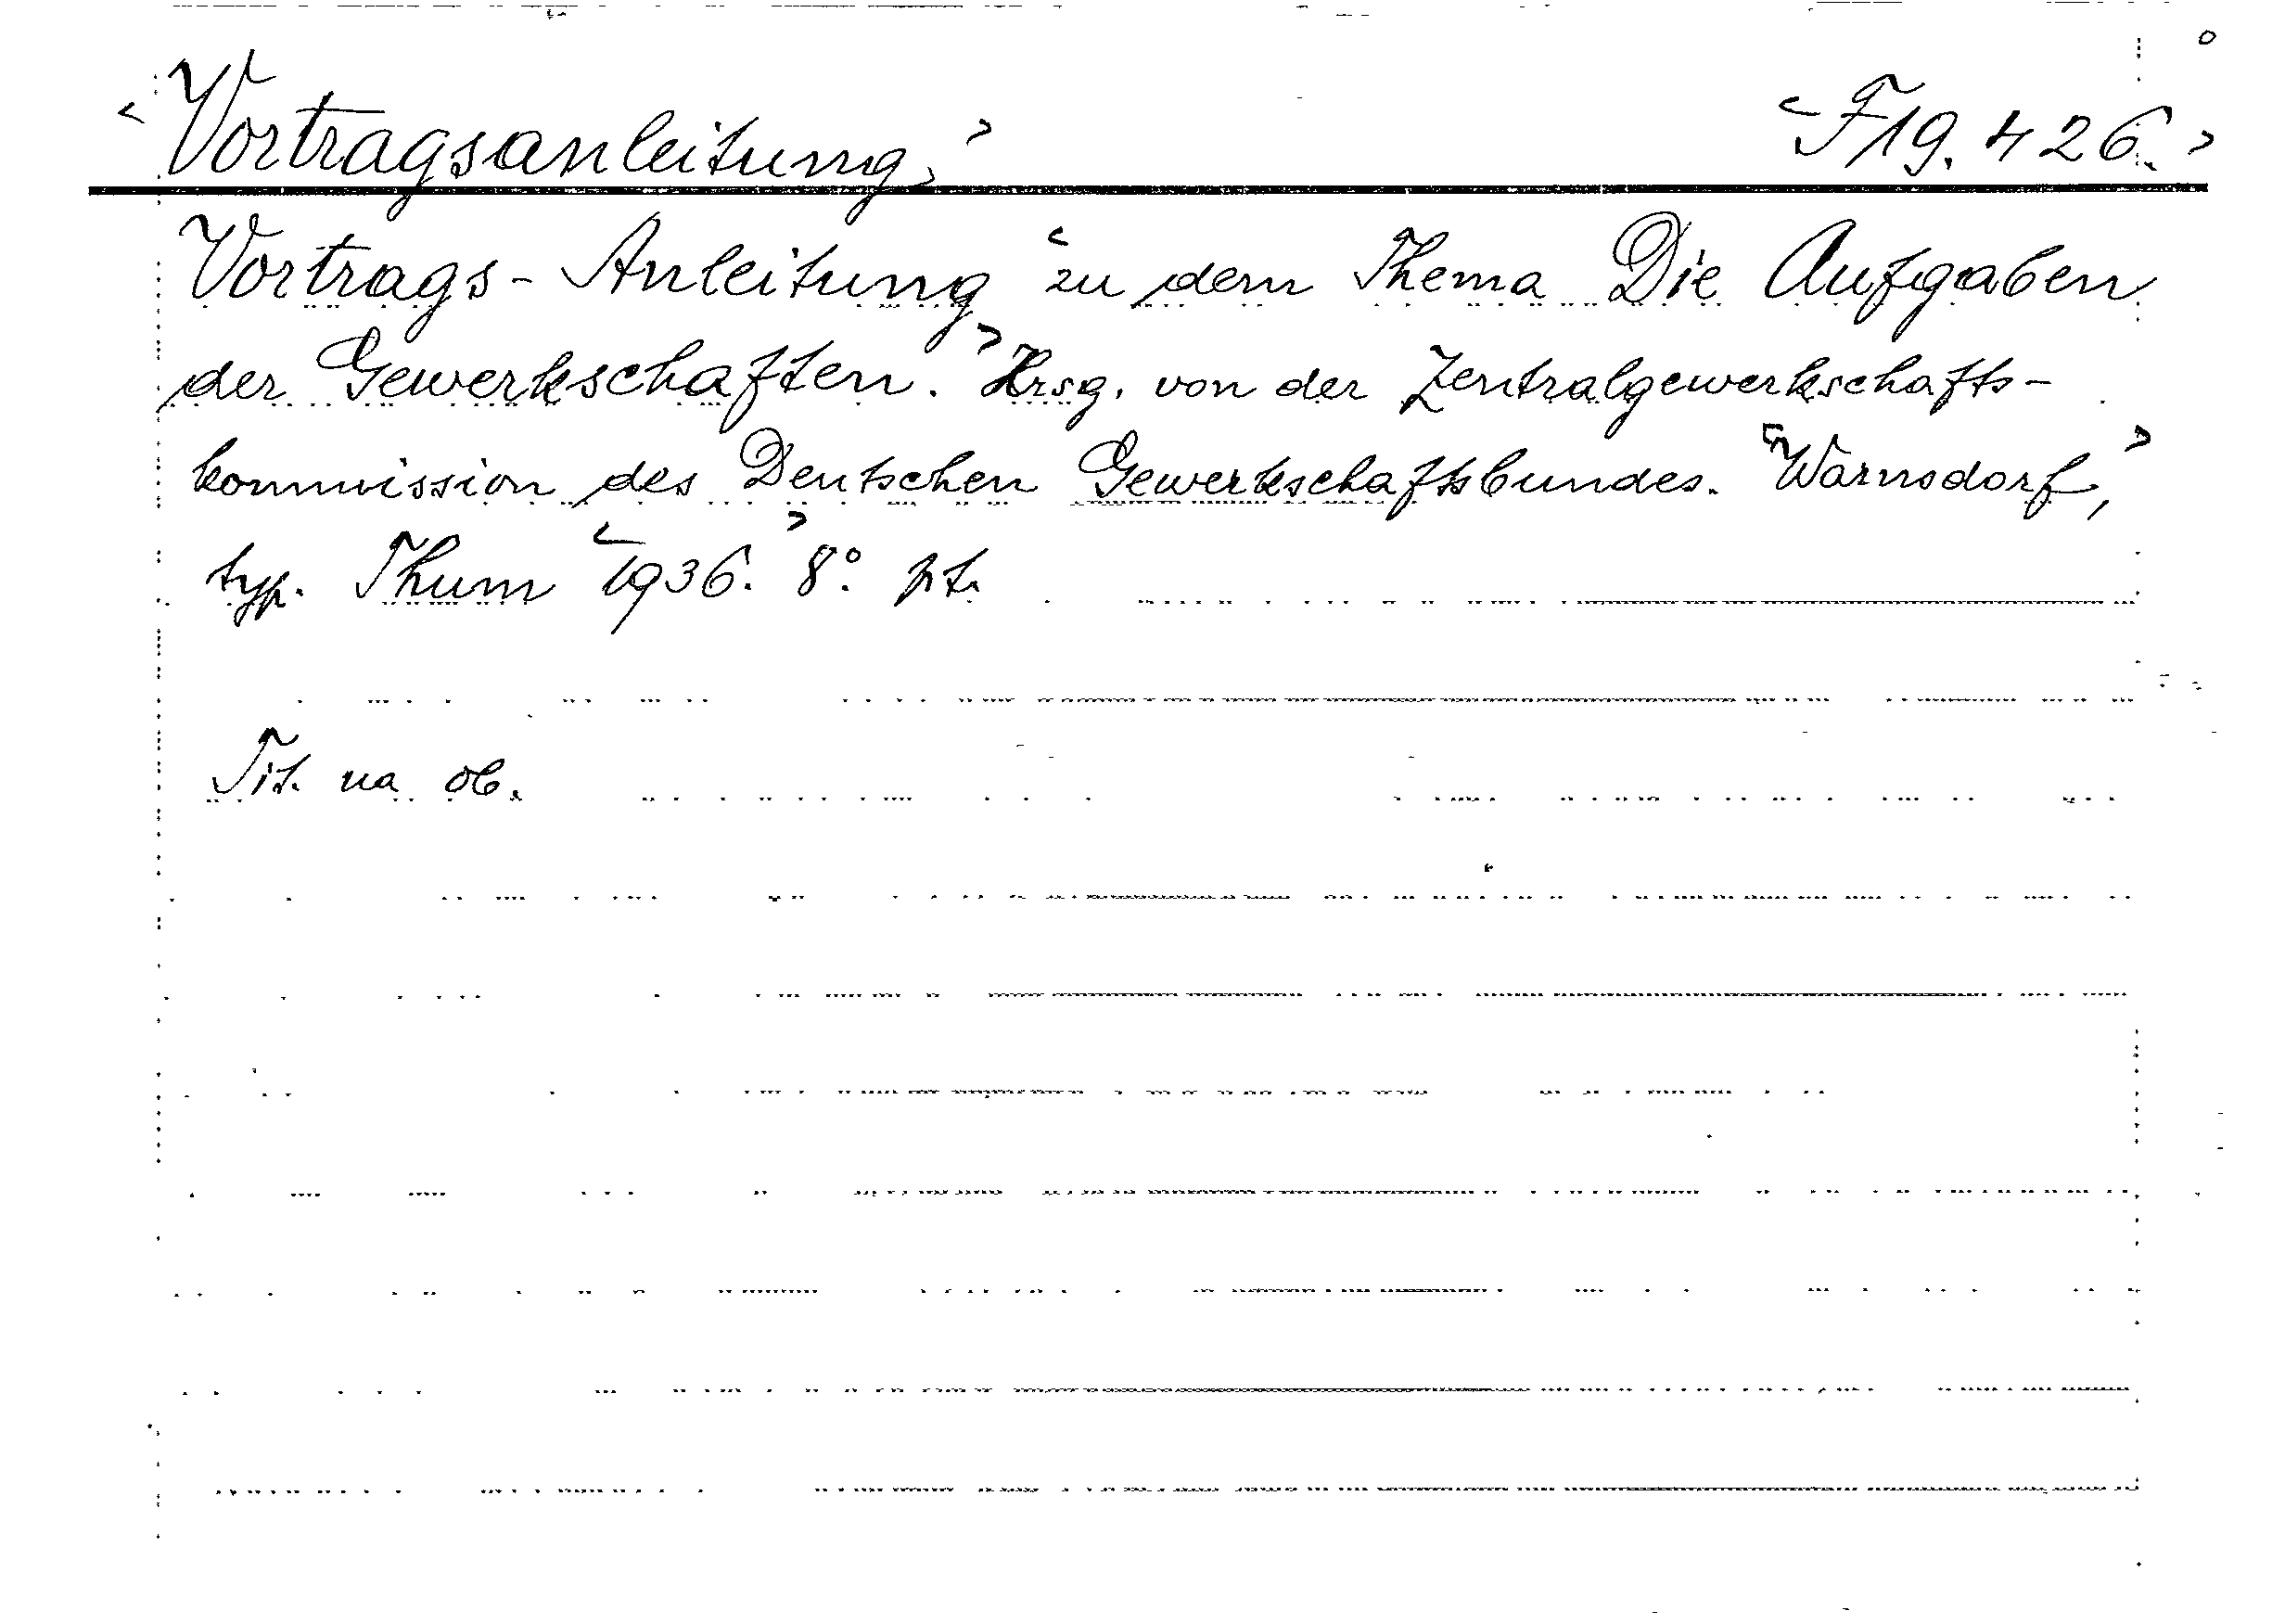 <Vortragsanleitung,> <F 19.426.>
Vortrags-Anleitung <zu dem Thema Die Aufgaben
der Gewerkschaften.> Hrsg. von der Zentralgewerkschafts-
kommission des Deutschen Gewerkschaftsbundes. <Warnsdorf,>
typ. Thum <1936.> 8°. pt.
Tit. na ob.